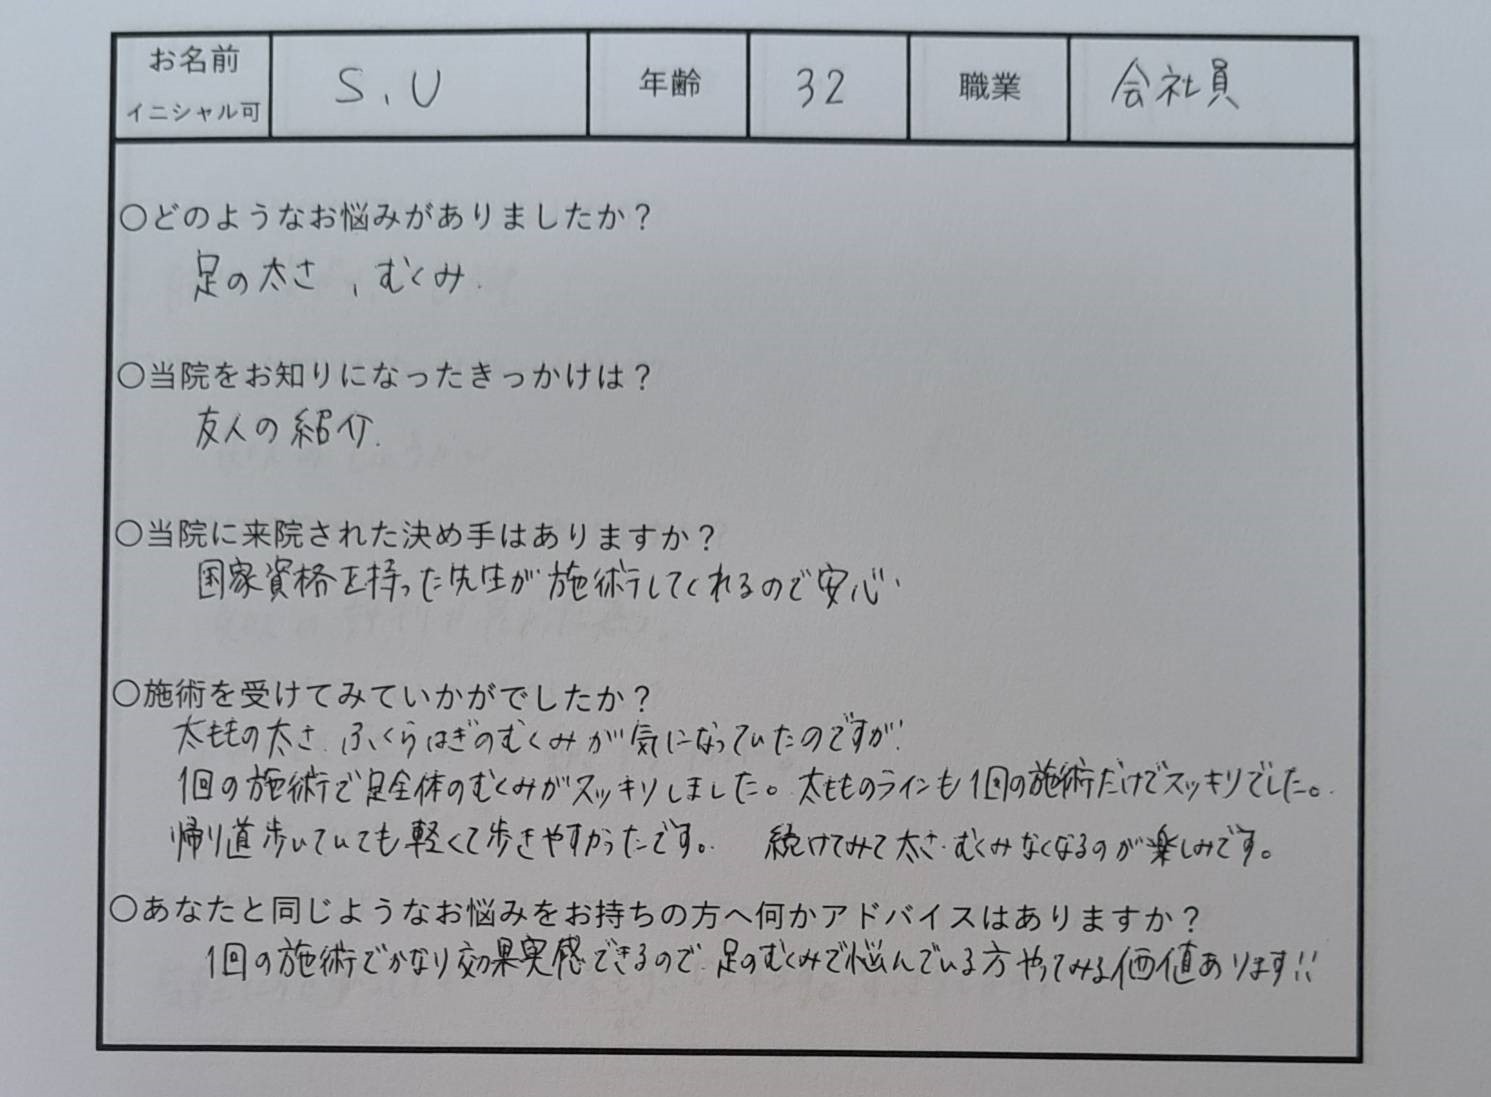 お名前
イニシャル可
S、U
年齢
32
職業
会社員
○どのようなお悩みがありましたか？
足の太さ、むくみ.
○当院をお知りになったきっかけは？
友人の紹介.
○当院に来院された決め手はありますか？
国家資格を持った先生が施術してくれるので安心.
○施術を受けてみていかがでしたか？
太ももの太さ.ふくらはぎのむくみが気になっていたのですが.
1回の施術で足全体のむくみがスッキリしました。太もものラインも1回の施術だけでスッキリでした。
帰り道歩いていても軽くて歩きやすかったです。 続けてみて太さ.むくみなくなるのが楽しみです。
○あなたと同じようなお悩みをお持ちの方へ何かアドバイスはありますか？
1回の施術でかなり効果実感できるので.足のむくみで悩んでいる方やってみる価値あります!!